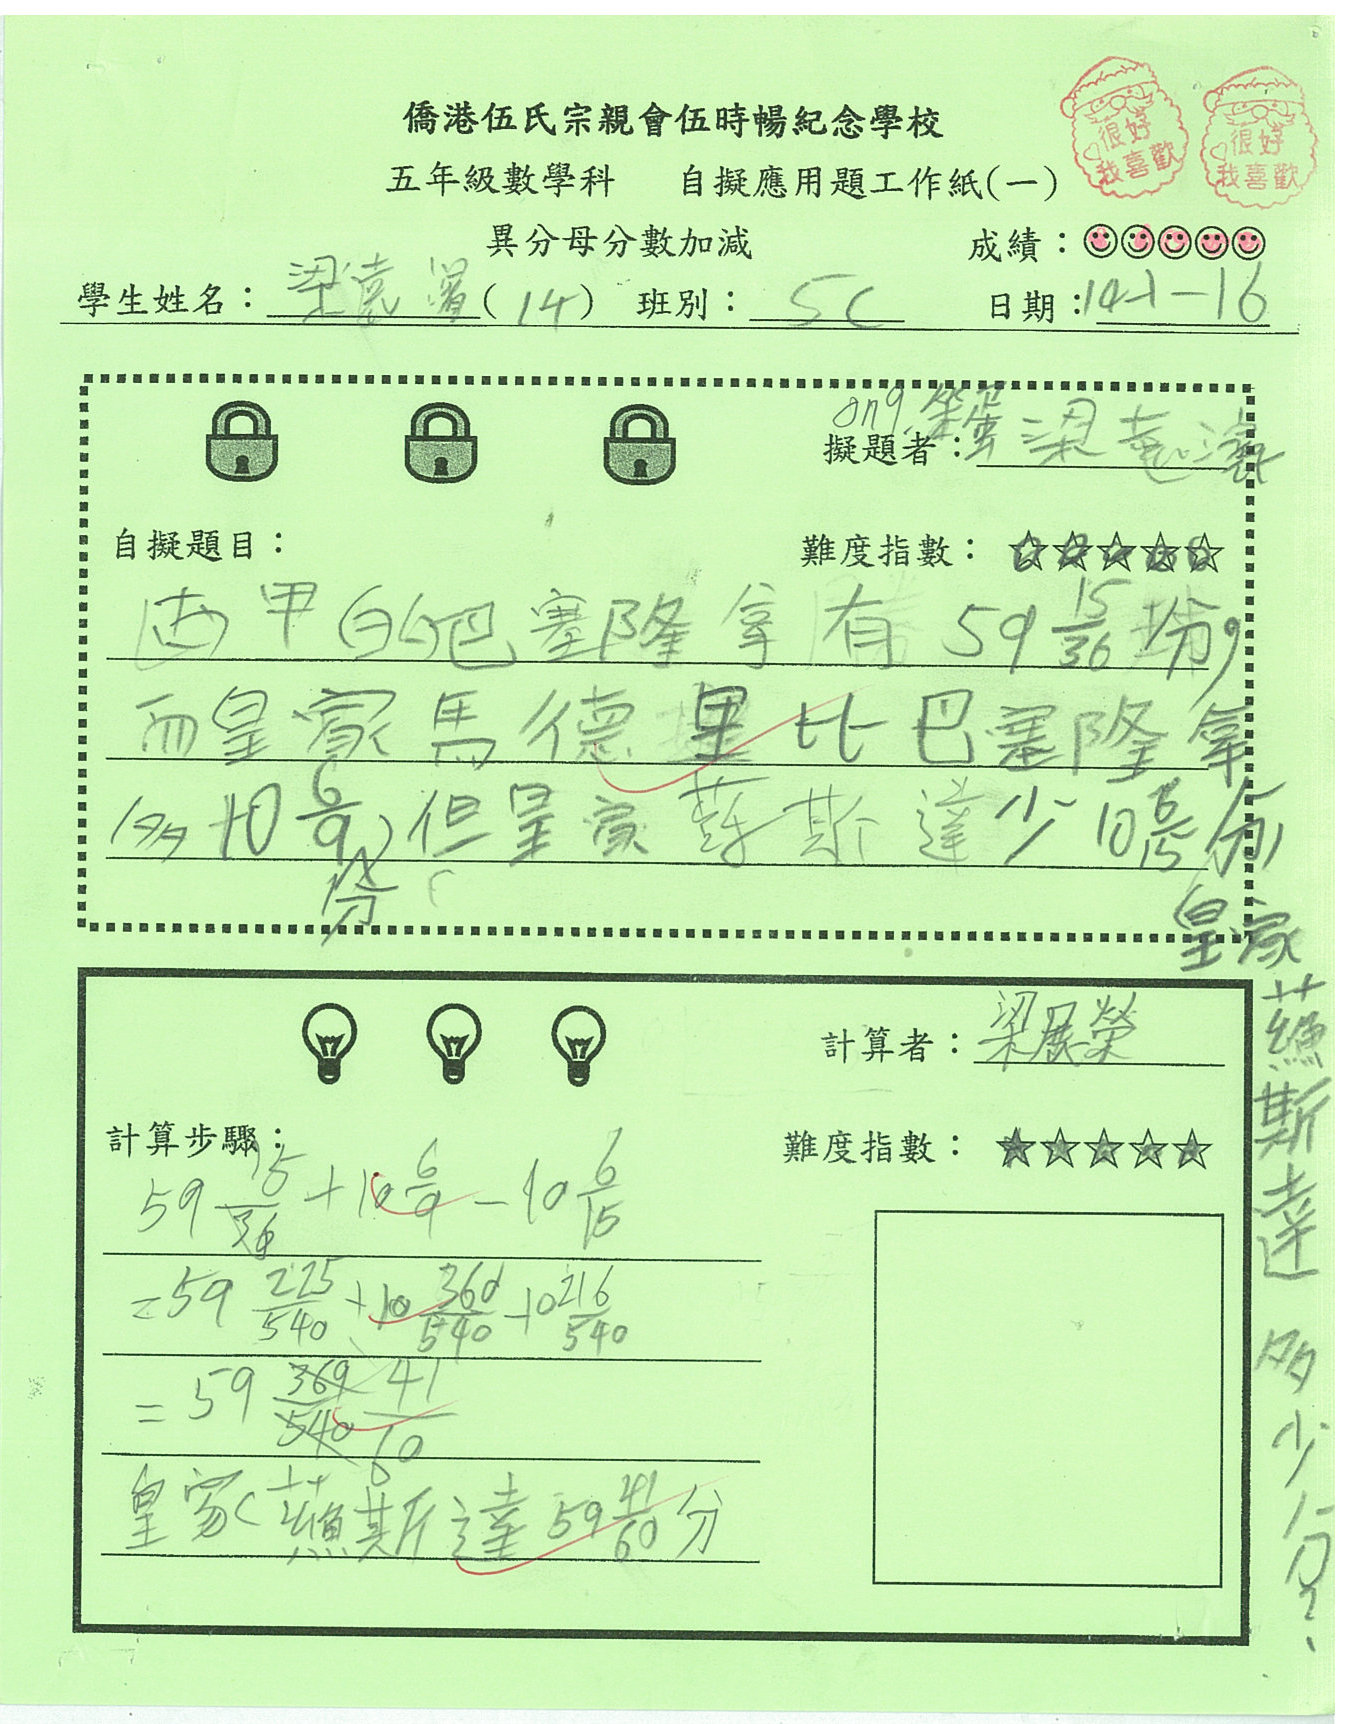 僑港伍氏宗親會伍時暢紀念學校
很好
我喜歡
很好
我喜歡
五年級數學科 自擬應用題工作紙(一)
異分母分數加減 成績：
學生姓名： 梁 (14) 班別： 5C 日期： 14-1-16
擬題者： 梁
自擬題目： 難度指數： ☆☆☆☆☆
西甲的巴塞隆拿有59 15/36分,
而皇家馬德里比巴塞隆拿
多10 6/9分,但皇家蘇斯達少10 6/15分,
皇家蘇斯達多少分?
計算者： 梁展榮
計算步驟： 難度指數： ★★★★★
59 15/36 + 10 6/9 - 10 6/15
=59 225/540 + 10 360/540 - 10 216/540
=59 369/540 41/60
皇家蘇斯達59 41/60分